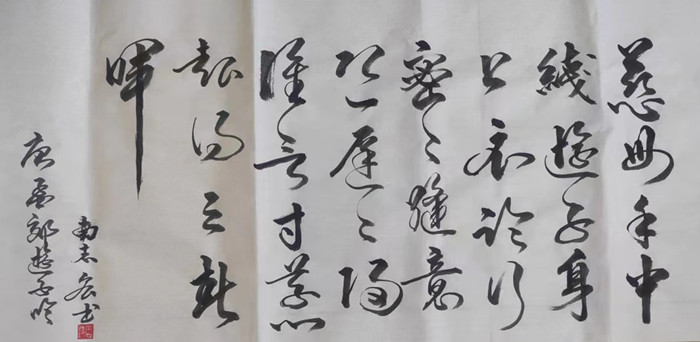 慈母手中
綫遊子身
上衣臨行
密〻縫意
恐遲〻歸
誰言寸草心
報得三春
暉
唐孟郊遊子吟
志宏书